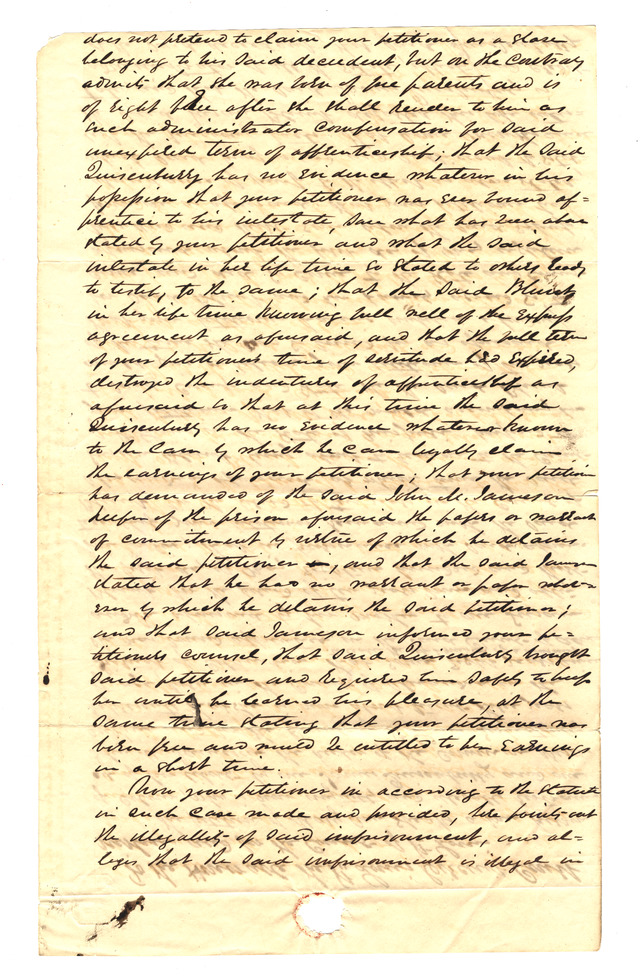 does not pretend to claim your petitioner as a slave
belonging to his said decedent, but on the contrary
admits that she was born of free parents and is
of right free after she shall render to him as
such administrator compensation for said
unexpired term of apprenticeship; that the said
Quisenberry has no evidence whatever in his
possession that your petitioner was ever bound ap=
prentice to his intestate, save what has been above
stated by your petitioner and what the said
intestate in her life time so stated to others ready
to testify to the same; that the said
in her life time knowing full well of the express
agreement as aforesaid, and that the full term
of your petitioners time of servitude had expired,
destroyed the indentures of apprenticeship as
aforesaid so that at this time the said
Quisenberry has no evidence whatever known
to the Law by which he can legally claim
the earnings of your petitioner; that your petition
has demanded of the said John M. Jameson
keeper of the prison aforesaid the papers or warrant
of commitment by virtue of which he detains
the said petitioner, and that the said Jameson
stated that he has no warrant or paper what=
ever by which he detains the said petitioner;
and that said Jameson informed your pe=
titioners counsel, that said Quisenberry brought
said petitioner and required him safely to keep
her until he learned his pleasure, at the
same time stating that your petitioner was
born free and would be entitled to her earnings
in a short time.
Now your petitioner in according to the statute
in such case made and provided, here points out
the illegality of said imprisonment, and al=
leges that the said imprisonment is illegal in